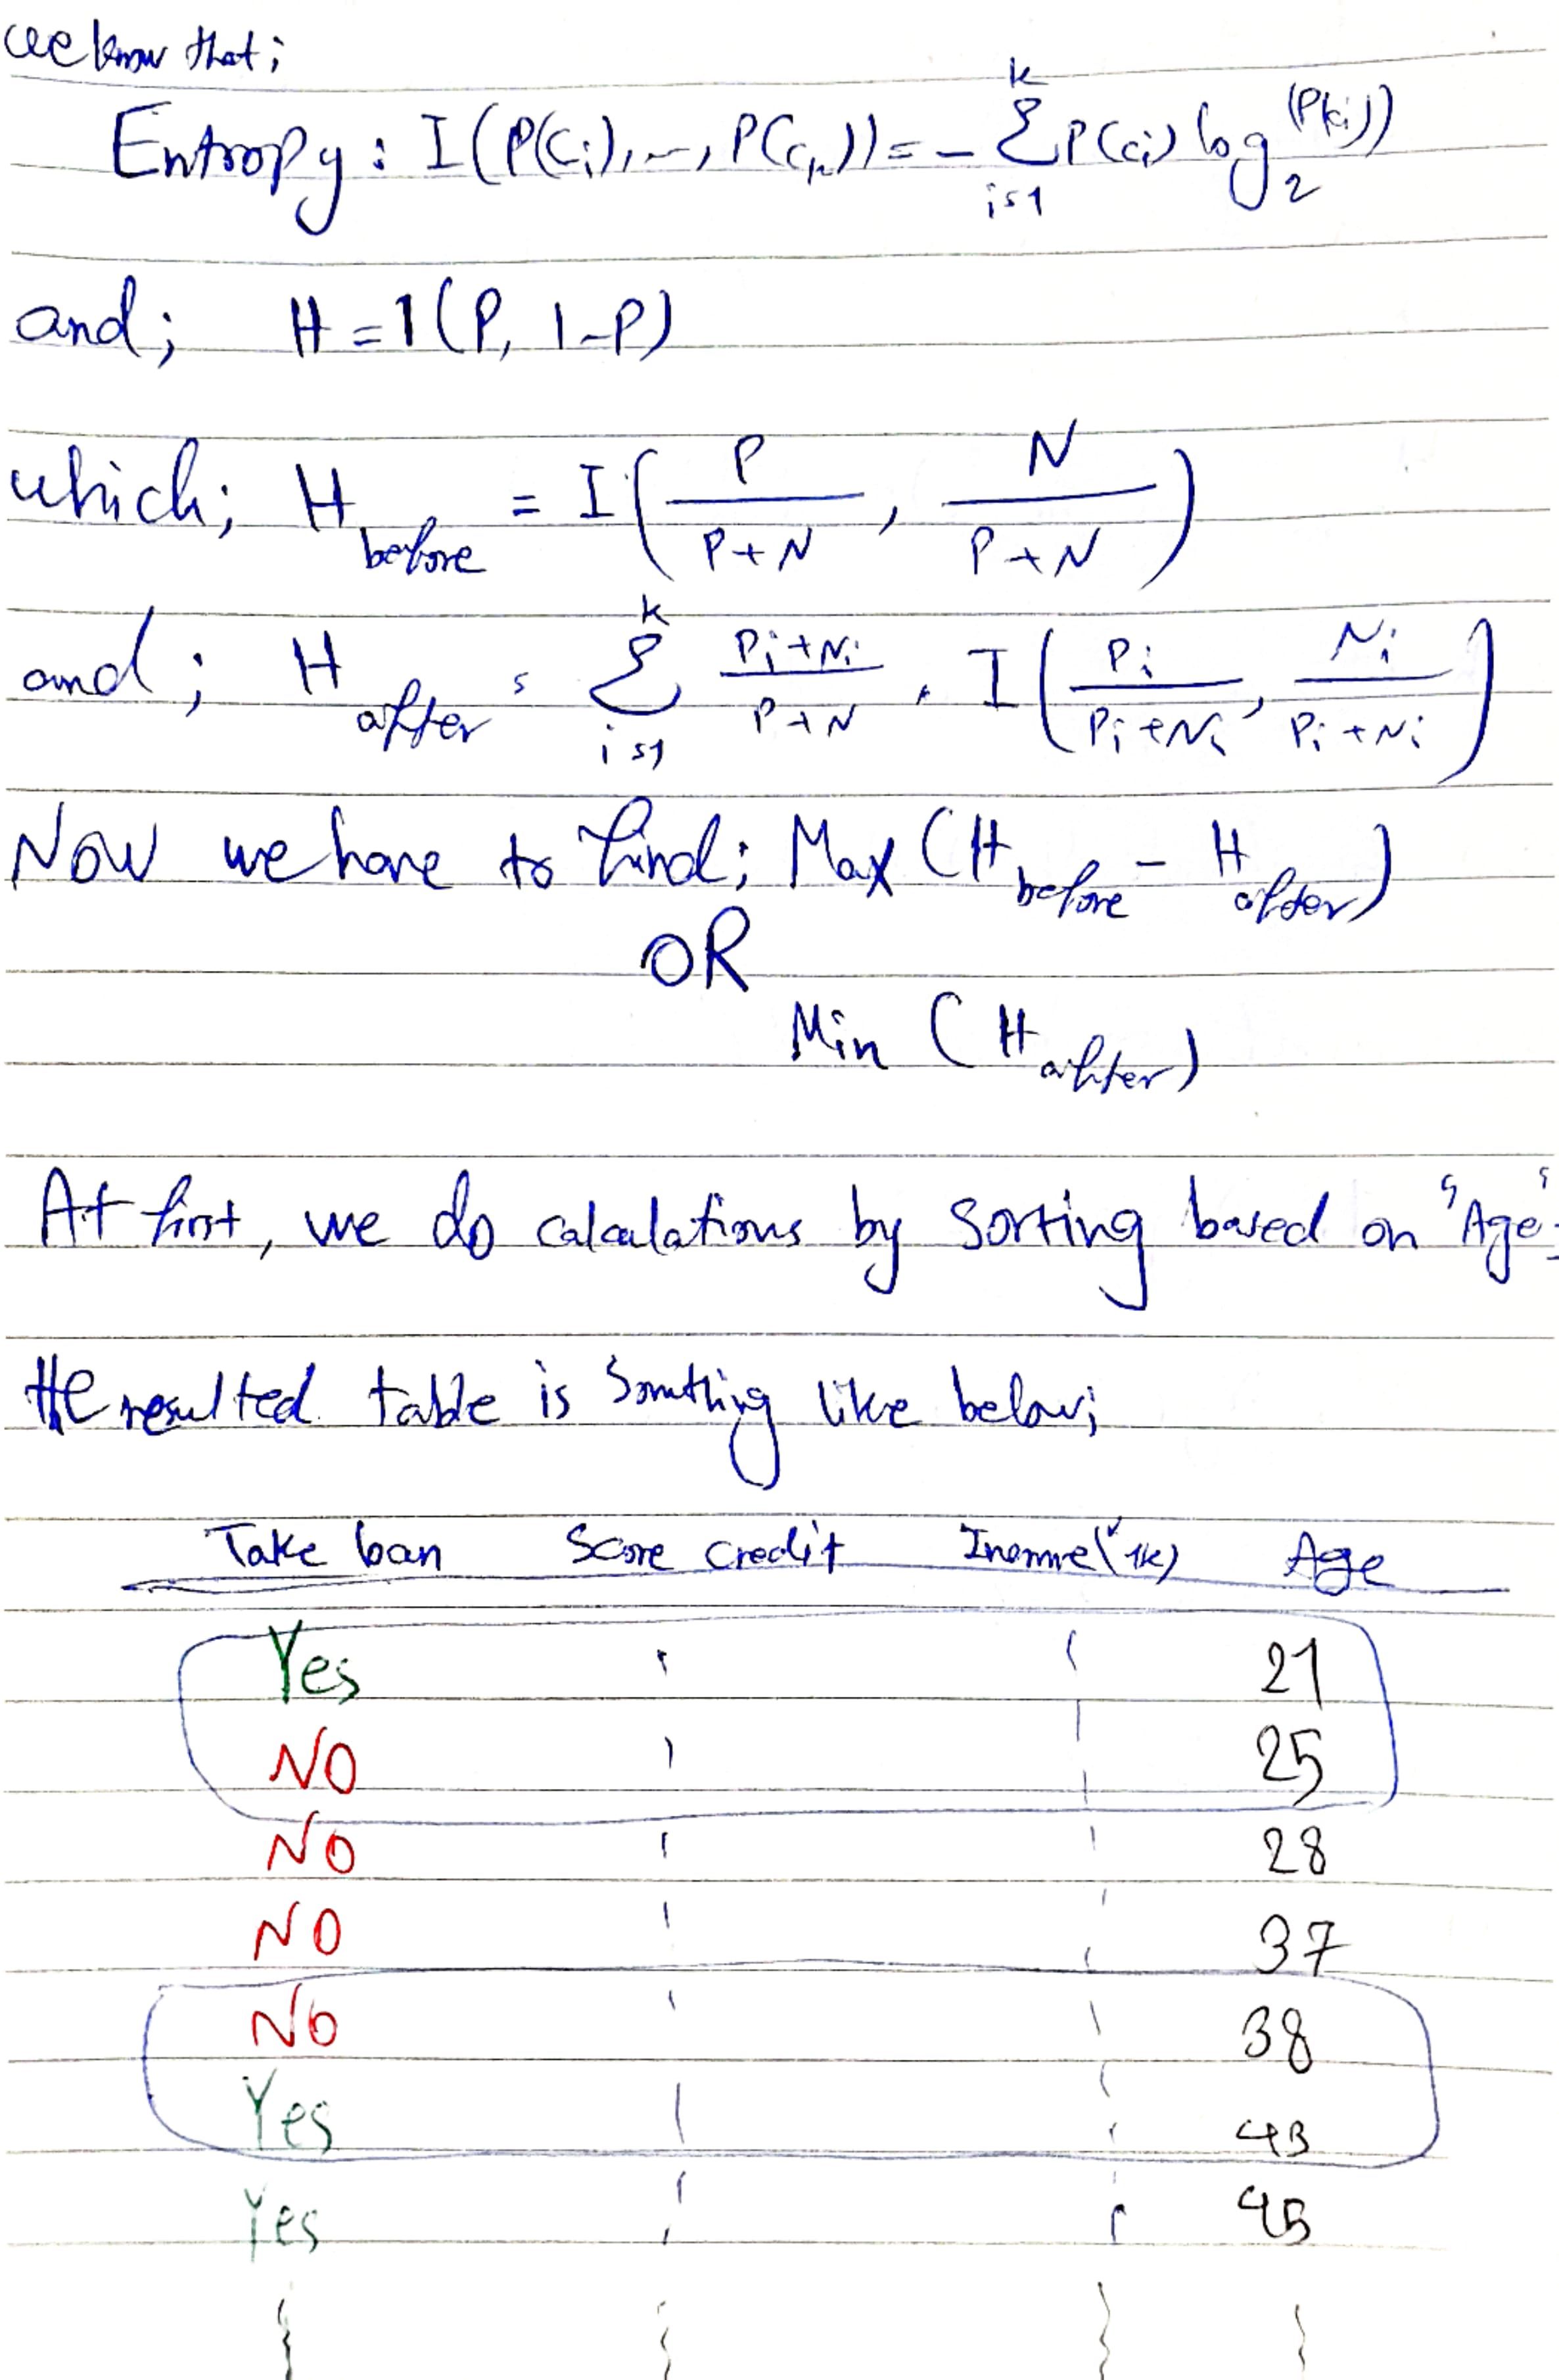 we know that;
Entropy: I(P(Ci),...,P(Cn)) = - Σ_{i=1}^{k} P(ci) log_2 (P(ci))
and; H = 1(P, 1-P)
which; H_before = I(P/(P+N), N/(P+N))
and; H_after = Σ_{i=1}^{k} (Pi+Ni)/(P+N) . I(Pi/(Pi+Ni), Ni/(Pi+Ni))
Now we have to find; Max (H_before - H_after)
OR
Min (H_after)
At first, we do calculations by sorting based on "Age".
the resulted table is Somthing like below;
Take loan Score credit Incomre(*1k) Age
Yes 21
NO 25
NO 28
NO 37
NO 38
Yes 43
Yes 45